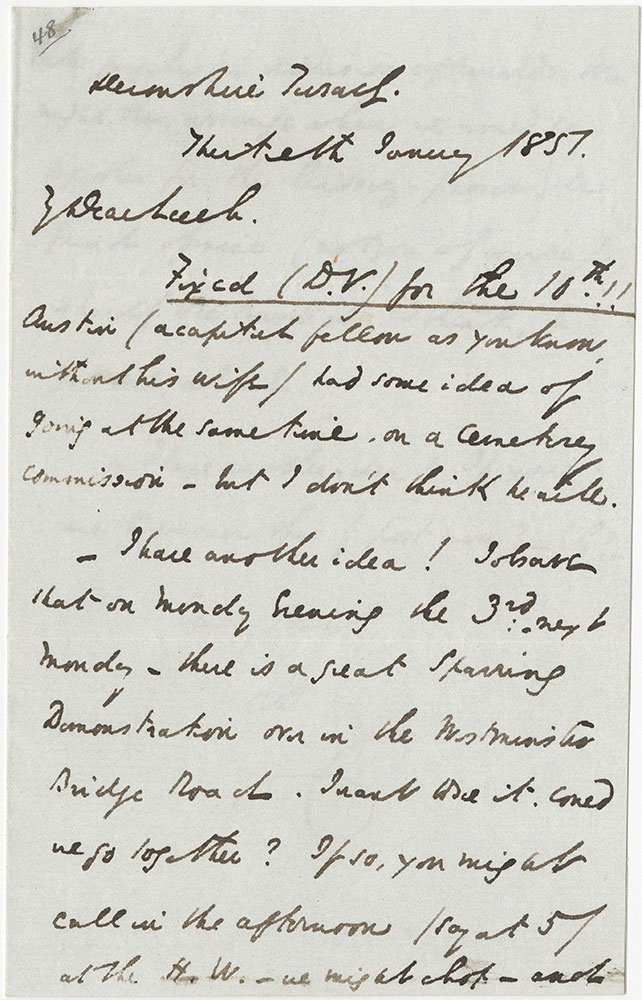 48
Devonshire Terrace.
Thirtieth January 1851.
My Dear Leech.
Fixed (D.V.) for the 10th!!
Austin (a capital fellow as you know,
without his wife) had some idea of
going at the same time, on a Cemetery
commission – but I don't think he will.
– I have another idea! I observe
that on Monday Evening the 3rd. next
Monday – there is a great Sparring
Demonstration over in the Westminster
Bridge Road. I want to see it. Could
we go together? If so, you might
call in the afternoon (say at 5)
at the H. W. – we might chop – and